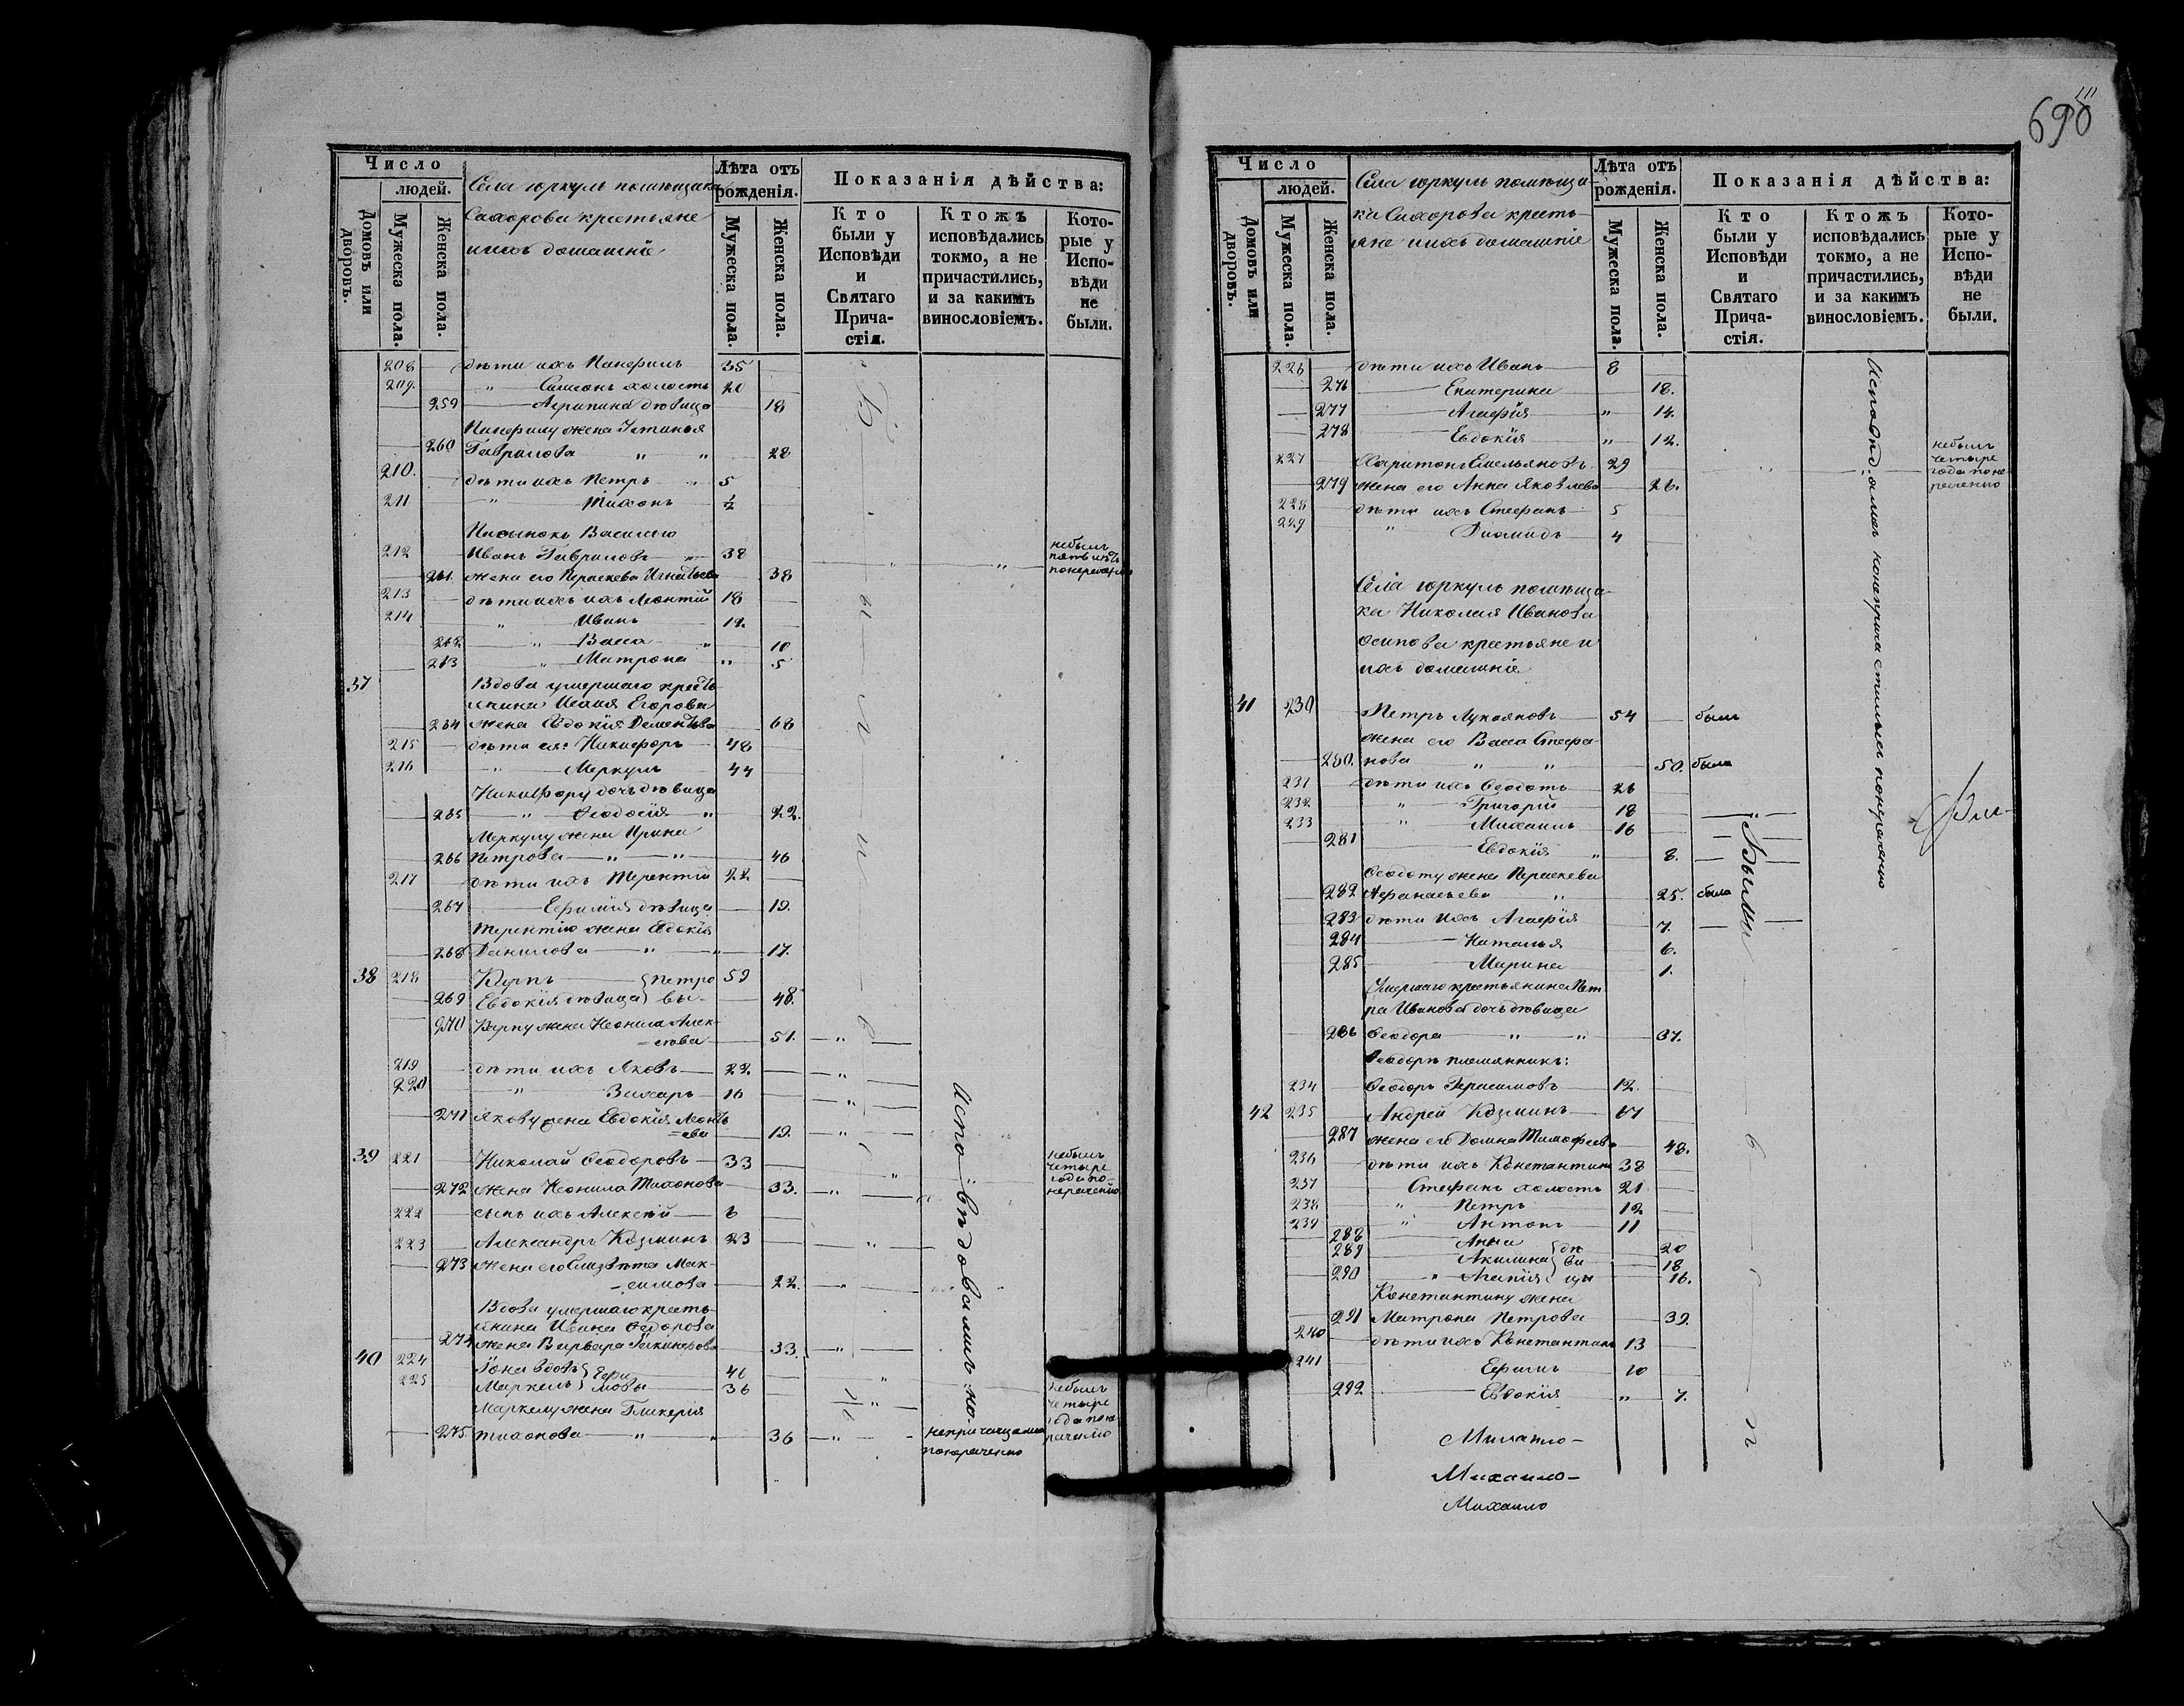 698
Число
людей.
Домовъ или дворовъ.
Мужеска пола.
Женска пола.
Села юркуль помѣщика
Сахорова крестьяне
и ихъ домашніе
Лѣта отъ рожденія.
Мужеска пола.
Женска пола.
Показанія дѣйства:
Кто были у Исповѣди и Святаго Причастія.
Ктожъ исповѣдались токмо, а не причастились, и за какимъ винословіемъ.
Которые у Исповѣди не были.
208 дѣти ихъ Панфилъ 35
209. " Симеонъ холостъ 20
259 Агрипина дѣвица 18
Панфилу жена Устинья
260 Гаврилова " " 28
210. дѣти ихъ Петръ " 5
211 " Тихонъ ½
Пасынокъ Василію
212 Иванъ Гавриловъ " 38
небылъ пять лѣтъ понерачению
261. жена его Параскева Игнатьева 38
213 дѣти ихъ Леонтій 18
214 " Иванъ 12.
262 " Васса " 10
263 " Матрона " 5
37 Вдова умершаго кресть-
янина Исаия Егорова
264 жена Евдокія Дементьева 68
215 дѣти ея: Никифоръ 48
216 " Меркулъ 44
Никифору дочь дѣвица
265 " Ѳеодосія " 22.
Меркулу жена Ирина
266 Петрова " " 46
217 дѣти ихъ Терентій 22
267 Ефимія дѣвица 19.
Терентію жена Евдокія
268 Данилова " " 17.
38 218 Карпъ } Петро 59
269 Евдокія дѣвица } вы 48.
270 Карпу жена Неонила Алек-
=сѣева 51. "
219 дѣти ихъ Яковъ 22. "
220 " Захаръ 16 "
271 Якову жена Евдокія Леонть
=ева 19. "
39 221 Николай Ѳеодоровъ 33
небылъ четыре года понерачению
272 жена Неонила Тихонова 33. "
222 сынъ ихъ Алексѣй 6
223 Александръ Козминъ 23 "
273 жена его Елизавета Мак-
=симова 22. "
Вдова умершаго кресть-
янина Ивана Ѳедорова
274 жена Варвара 33. "
40 224 Іона вдовъ } Ефи 46 "
225 Маркелъ } мовы 36 "
небылъ четыре года понерачению
Маркелу жена Гликерія
275. Тихонова " " 36 "
Были
Исповѣдовались но
непричащались
понерачению
Число
людей.
Домовъ или дворовъ.
Мужеска пола.
Женска пола.
Села юркуль помѣщи-
ка Сахорова кресть-
яне и ихъ домашніе
Лѣта отъ рожденія.
Мужеска пола.
Женска пола.
Показанія дѣйства:
Кто были у Исповѣди и Святаго Причастія.
Ктожъ исповѣдались токмо, а не причастились, и за какимъ винословіемъ.
Которые у Исповѣди не были.
226 дѣти ихъ Иванъ 8
276 Екатерина 18.
277 Агафія " 14.
278 Евдокія " 12.
227 Харитонъ Емельяновъ 29
небылъ четыре года поне-
рачению
279 жена его Анна Яковлева 26.
228 дѣти ихъ Стефанъ 5
229 " Діомидъ 4
Села юркуль помѣщи-
ка Николая Иванова
Осипова крестьяне и
ихъ домашніе
41 230 Петръ Лукояновъ 54 былъ
жена его Васса Стефа-
280. нова " " 50. была
231 дѣти ихъ Ѳеодотъ 26
232 " Григорій 18 "
233 " Михаилъ 16
281 Евдокія " 8.
Ѳеодоту жена Параскева
282 Афанасьева " 25. была
283 дѣти ихъ Агафія 7.
284 Наталья 6.
285 Марина 1.
Умершаго крестьянина Пет-
ра Иванова дочь дѣвица
286 Ѳеодора " " 37.
Ѳеодоры племянникъ:
234 Ѳеодоръ Герасимовъ 12.
42 235 Андрей Козминъ 67
287 жена его Домна Тимофеева 48.
236 дѣти ихъ Константинъ 38
237 Стефанъ холостъ 21
238 " Петръ 12
239 " Антонъ 11
288 Анна } дѣ 20
289 Акилина } ви 18
290 " Агапія } цы 16.
Константину жена
291 Матрона Петрова 39.
240 дѣти ихъ Константинъ 13
241 Ефимъ 10
292 Евдокія " 7.
Были
Исповѣдались нонепричастились понерачению
Михаило-
Михаило-
Михаило